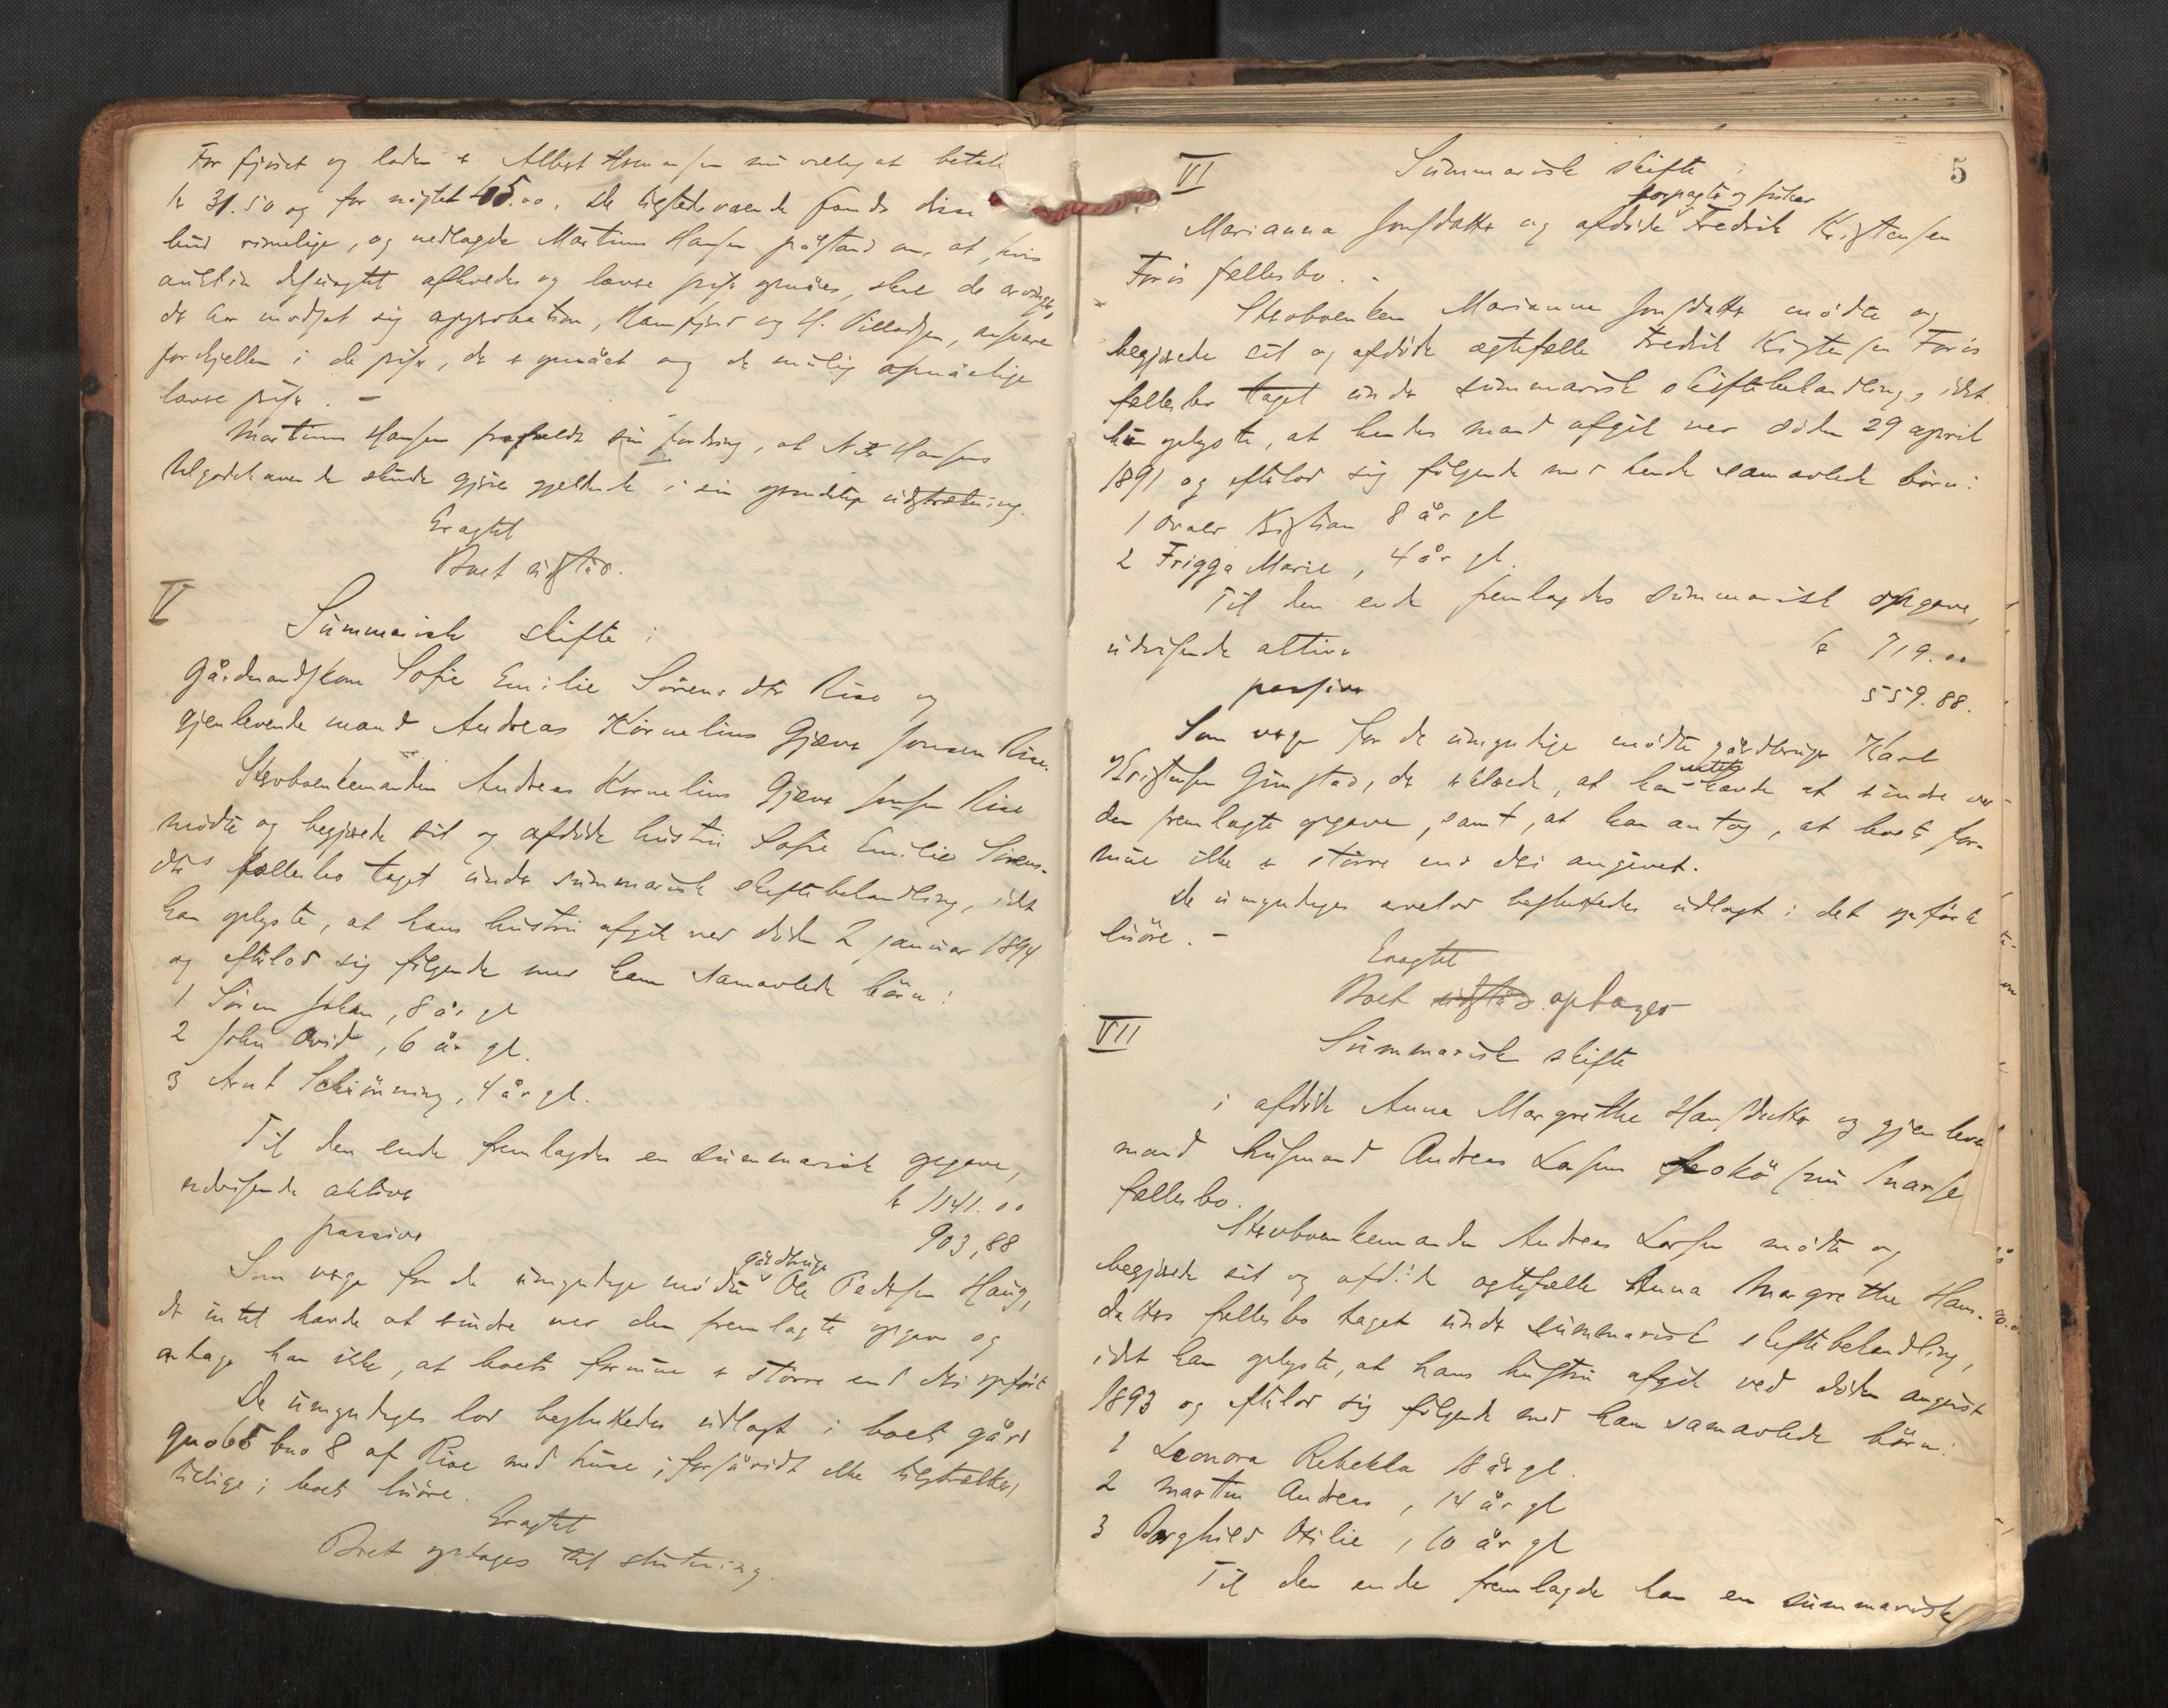 For fjøset og laden er Albert Hansen nu villig at betale
kr 31.50 og for nøstet 45.00. De tilstedeværende fandt disse
bud rimelige, og nedlagde Martinus Hansen påstand om, at, hvis
auktion desuagtet afholdes og lavere pris opnåes, skal de arvinger,
der har modsat sig approbation, Hamfjord og H. Villadsen, ansvare
forskjellen i de priser, der er opnået og de mulig opnåelige
lavere priser. -
Martinus Hansen frafaldt sin fordring, at N. Hansens
tilgodehavende skulde gjøres gjeldende i sin oprindelige udstrækning.
Eragtet
Boet udstår.
V
Summarisk skifte i
Gårdmandskone Sofie Emilie Sørensdtr Rise og
gjenlevende mand Andreas Kornelius Gjæver Jensen Rise.
Stervboenkemanden Andreas Kornelius Gjæver Jensen Rise
mødte og begjærede sit og afdøde hustru Sofie Emilie Sørens-
dtrs fællesbo taget under summarisk skiftebehandling, idet
han oplyste, at hans hustru afgik ved døden 2 januar 1894
og efterlod sig følgende med ham samavlede børn:
1 Søren Johan, 8 år gl
2 John Arvid, 6 år gl.
3 Arnt Schiønning, 4 år gl.
Til den ende fremlagdes en summarisk opgave,
udvisende aktiva kr 1141.00
passiva 903,88
Som verge for de umyndige mødte gårdbruger Ole Pedersen Haug,
der intet havde at erindre ved den fremlagte opgave og
antager han ikke, at boets formue er større end deri opført
De umyndiges lod besluttedes udlagt i boets gård
gno 65 bno 8 af Rise med huse; forsåvidt ikke tilstrækkelig
tillige i boets løsøre.
Eragtet
Boet optages til slutning.
5
VI
Summarisk skifte i
forpagter og fisker
Marianna Jensdatter og afdøde Fredrik Kristensen
Forøs fællesbo. -
Stervboenken Marianna Jensdatter mødte og
begjærede sit og afdøde ægtefælle Fredrik Kristensen Forøs
fællesbo taget under summarisk skiftebehandling, idet
hun oplyste, at hendes mand afgik ved døden 29 april
1891 og efterlod sig følgende med hende samavlede børn:
1 Kristian 8 år gl
2 Frigga Marie, 4 år gl.
Til den ende fremlagdes summarisk opgave,
udvisende aktiva kr 719.00
passiva 559.88.
Som verge for de umyndige mødte gårdbruger Karl
Kristensen Grimstad, der erklærede, at han intet havde at erindre ved
den fremlagte opgave, samt, at han antog, at boets for-
mue ikke er større end deri angivet.
De umyndiges arvelod besluttedes udlagt i det opførte
løsøre. -
Eragtet
Boet udstår. optages
VII
Summarisk skifte
i afdøde Anna Margrethe Hansdatter og gjenlevende
mand husmand Andreas Larsen
fællesbo.
Stervboenkemanden Andreas Larsen mødte og
begjærede sit og afdøde ægtefælle Anna Margrethe Hans-
datters fællesbo taget under summarisk skiftebehandling,
idet han oplyste, at hans hustru afgik ved døden august
1893 og efterlod sig følgende med ham samavlede børn:
1 Leonora Rebekka 18 år gl.
2 Martin Andreas, 14 år gl
3 Borghild Otilie, 10 år gl
Til den ende fremlagde han en summarisk